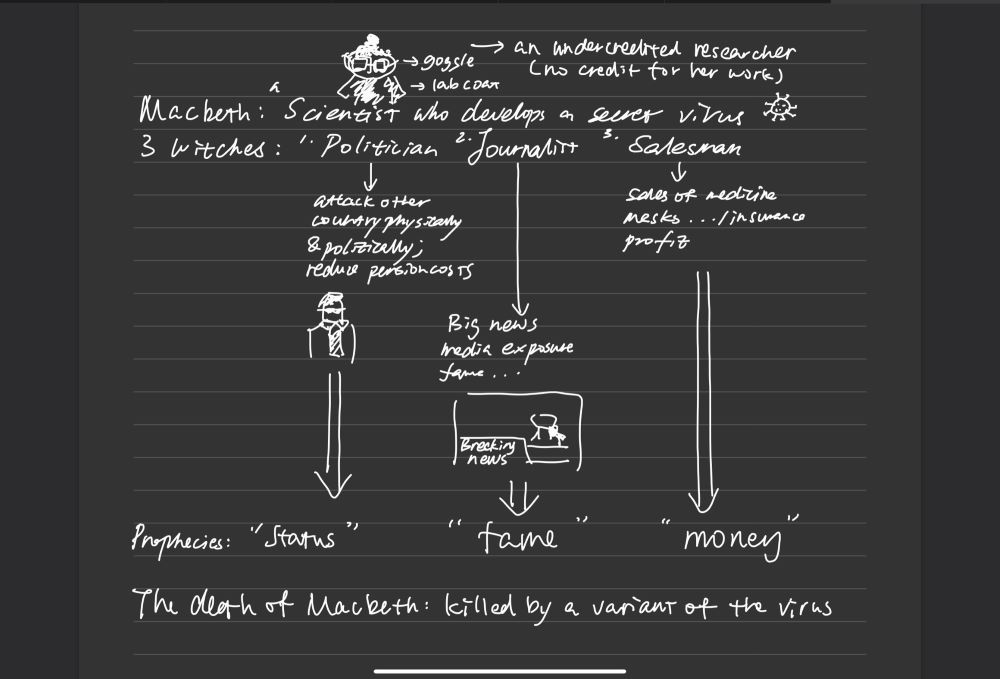 → goggle → an undercredited researcher
→ lab coat (no credit for her work)
Macbeth: a Scientist who develops a secret virus
3 witches: 1. Politician 2. Journalist 3. Salesman
attack other
country physically
& politically;
reduce pension costs
Sales of medicine
masks .../insurance
profit
Big news
media exposure
fame ...
Breaking
news
Prophecies: "Status" "fame" "money"
The death of Macbeth: killed by a variant of the virus